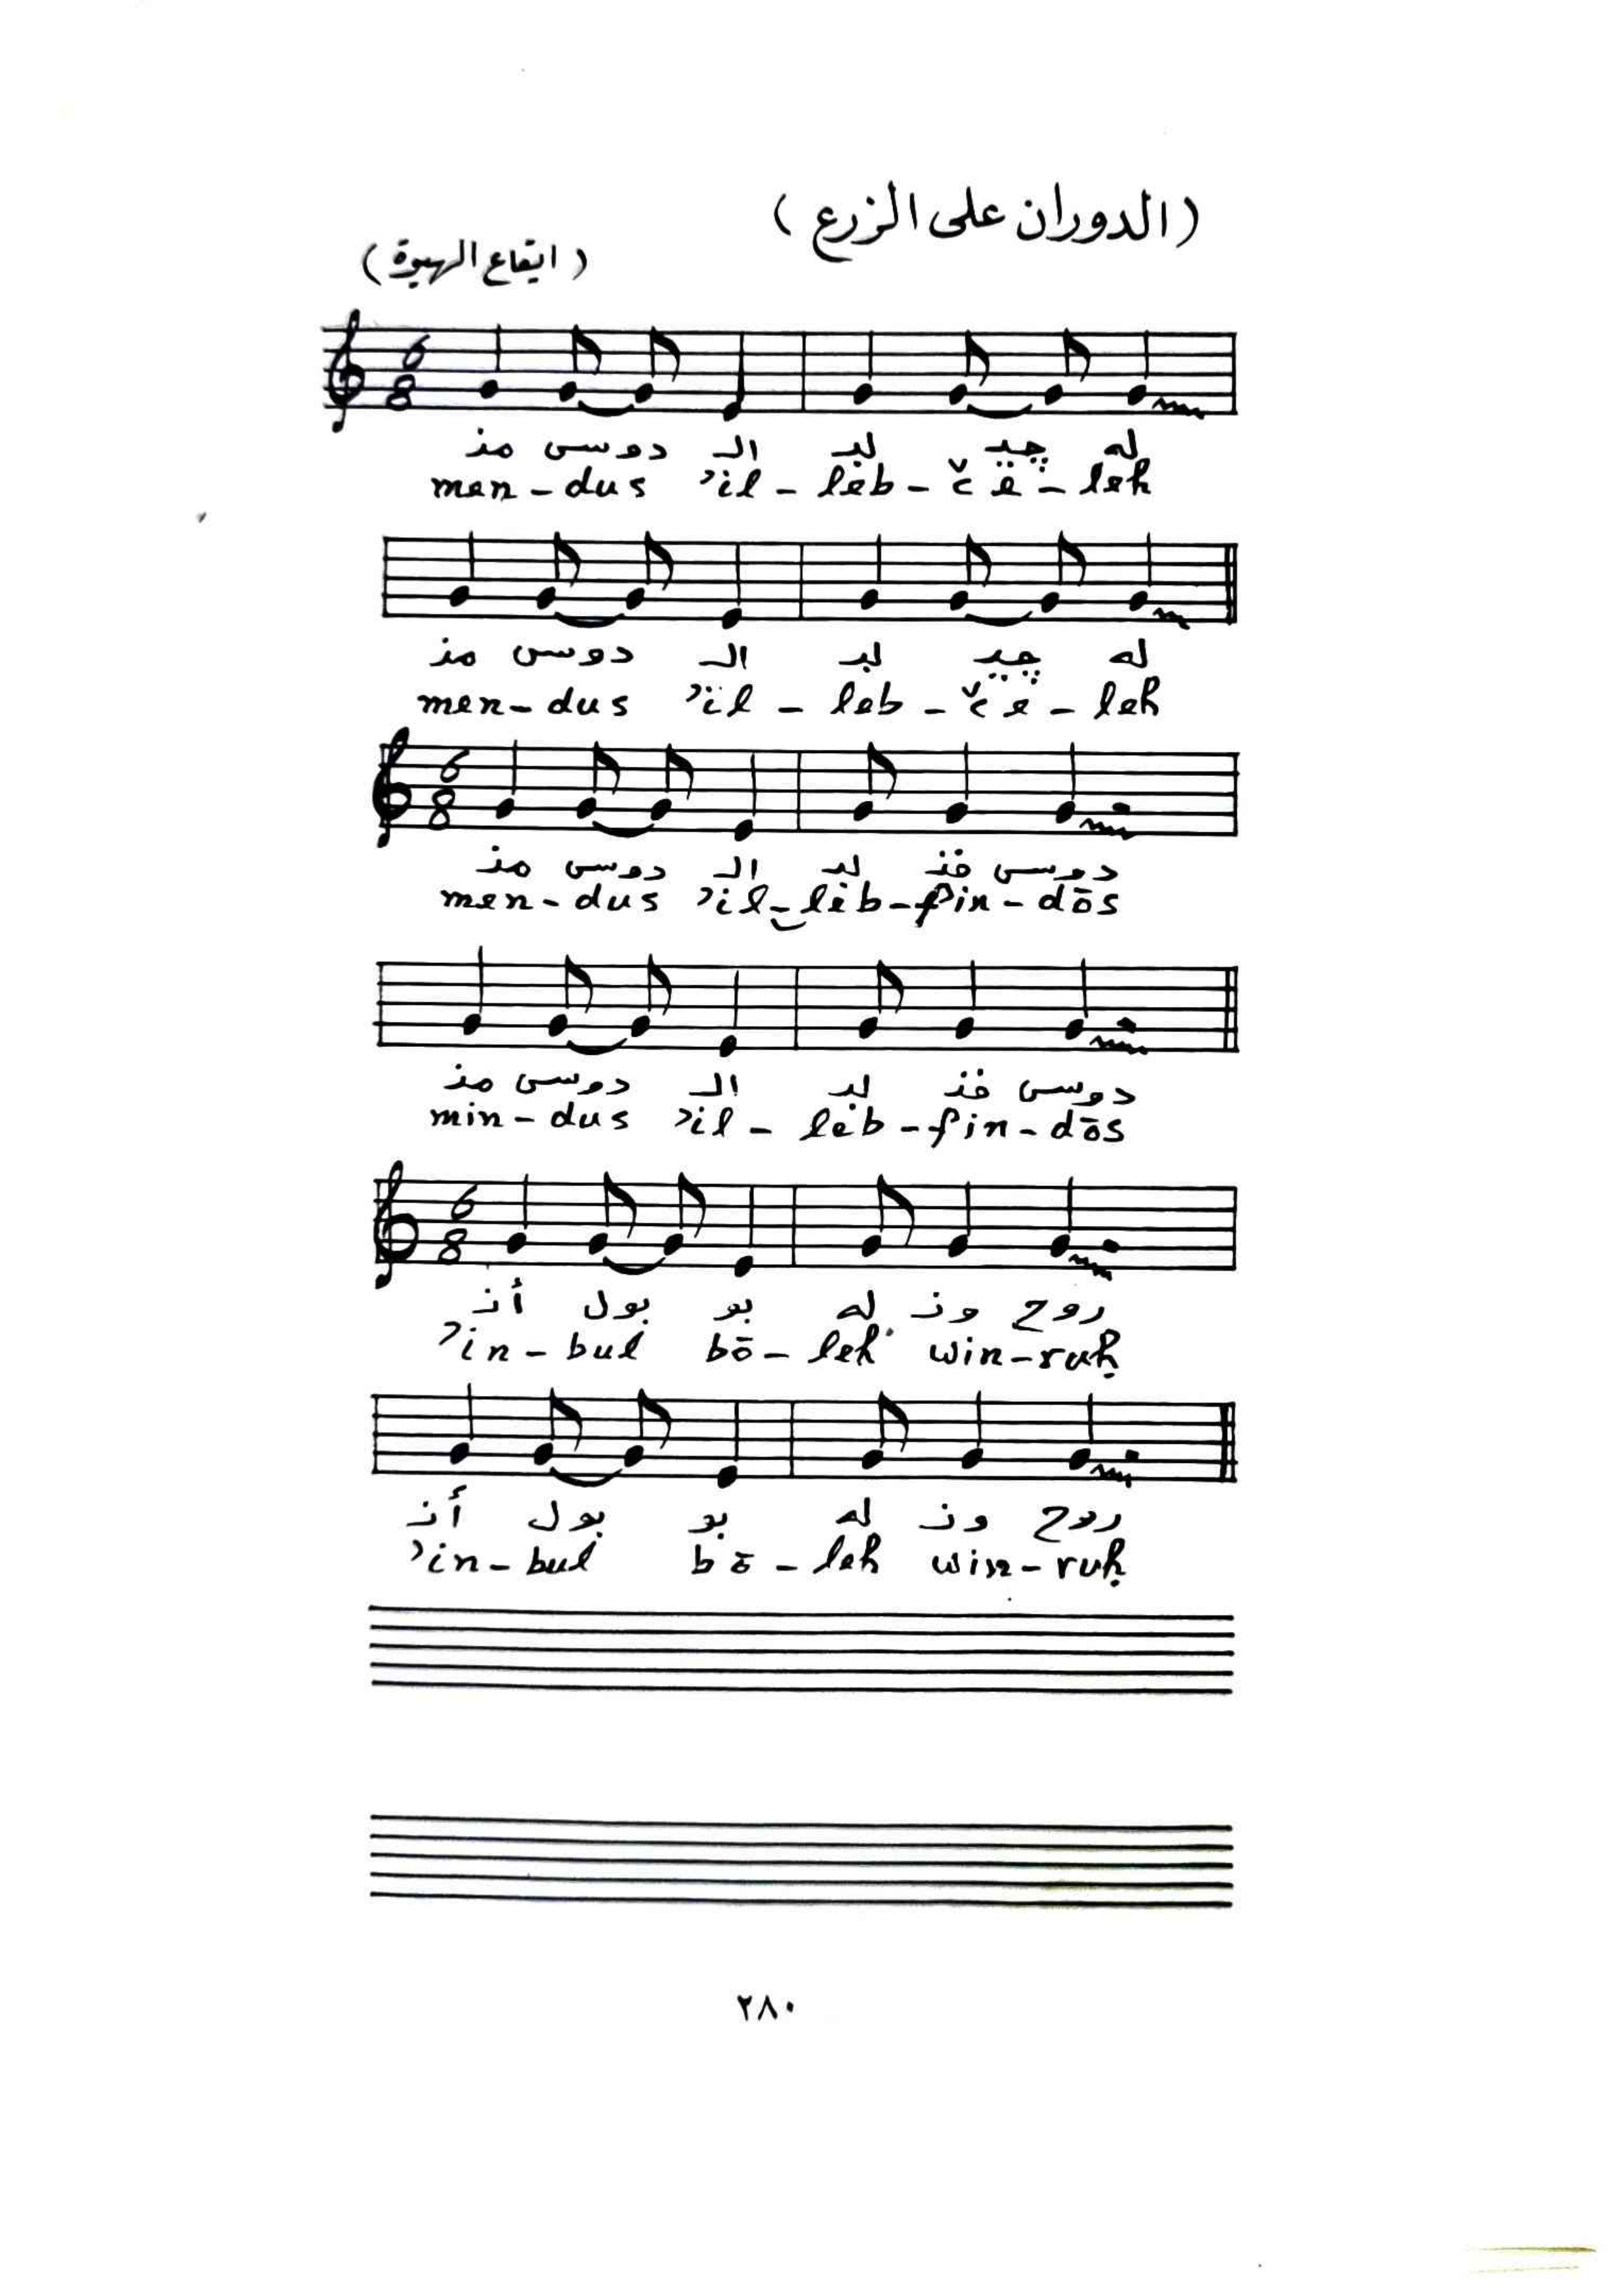 (الدوران على الزرع)
(ايقاع الهبوة)
6
8
منـ دوسى الـ لبـ چيـ له
men-dus ʾil-lėb-č̌ė-leh
منـ دوسى الـ لبـ چيـ له
men-dus ʾil-leb-č̌e-leh
6
8
منـ دوسى الـ لبـ فنـ دوسى
men-dus ʾil-lėb-fin-dōs
منـ دوسى الـ لبـ فنـ دوسى
min-dus ʾil-lėb-fin-dōs
6
8
أنـ بول بو له ونـ روح
ʾin-bul bō-leh win-ruḥ
أنـ بول بو له ونـ روح
ʾin-bul bō-leh win-ruḥ
٢٨٠